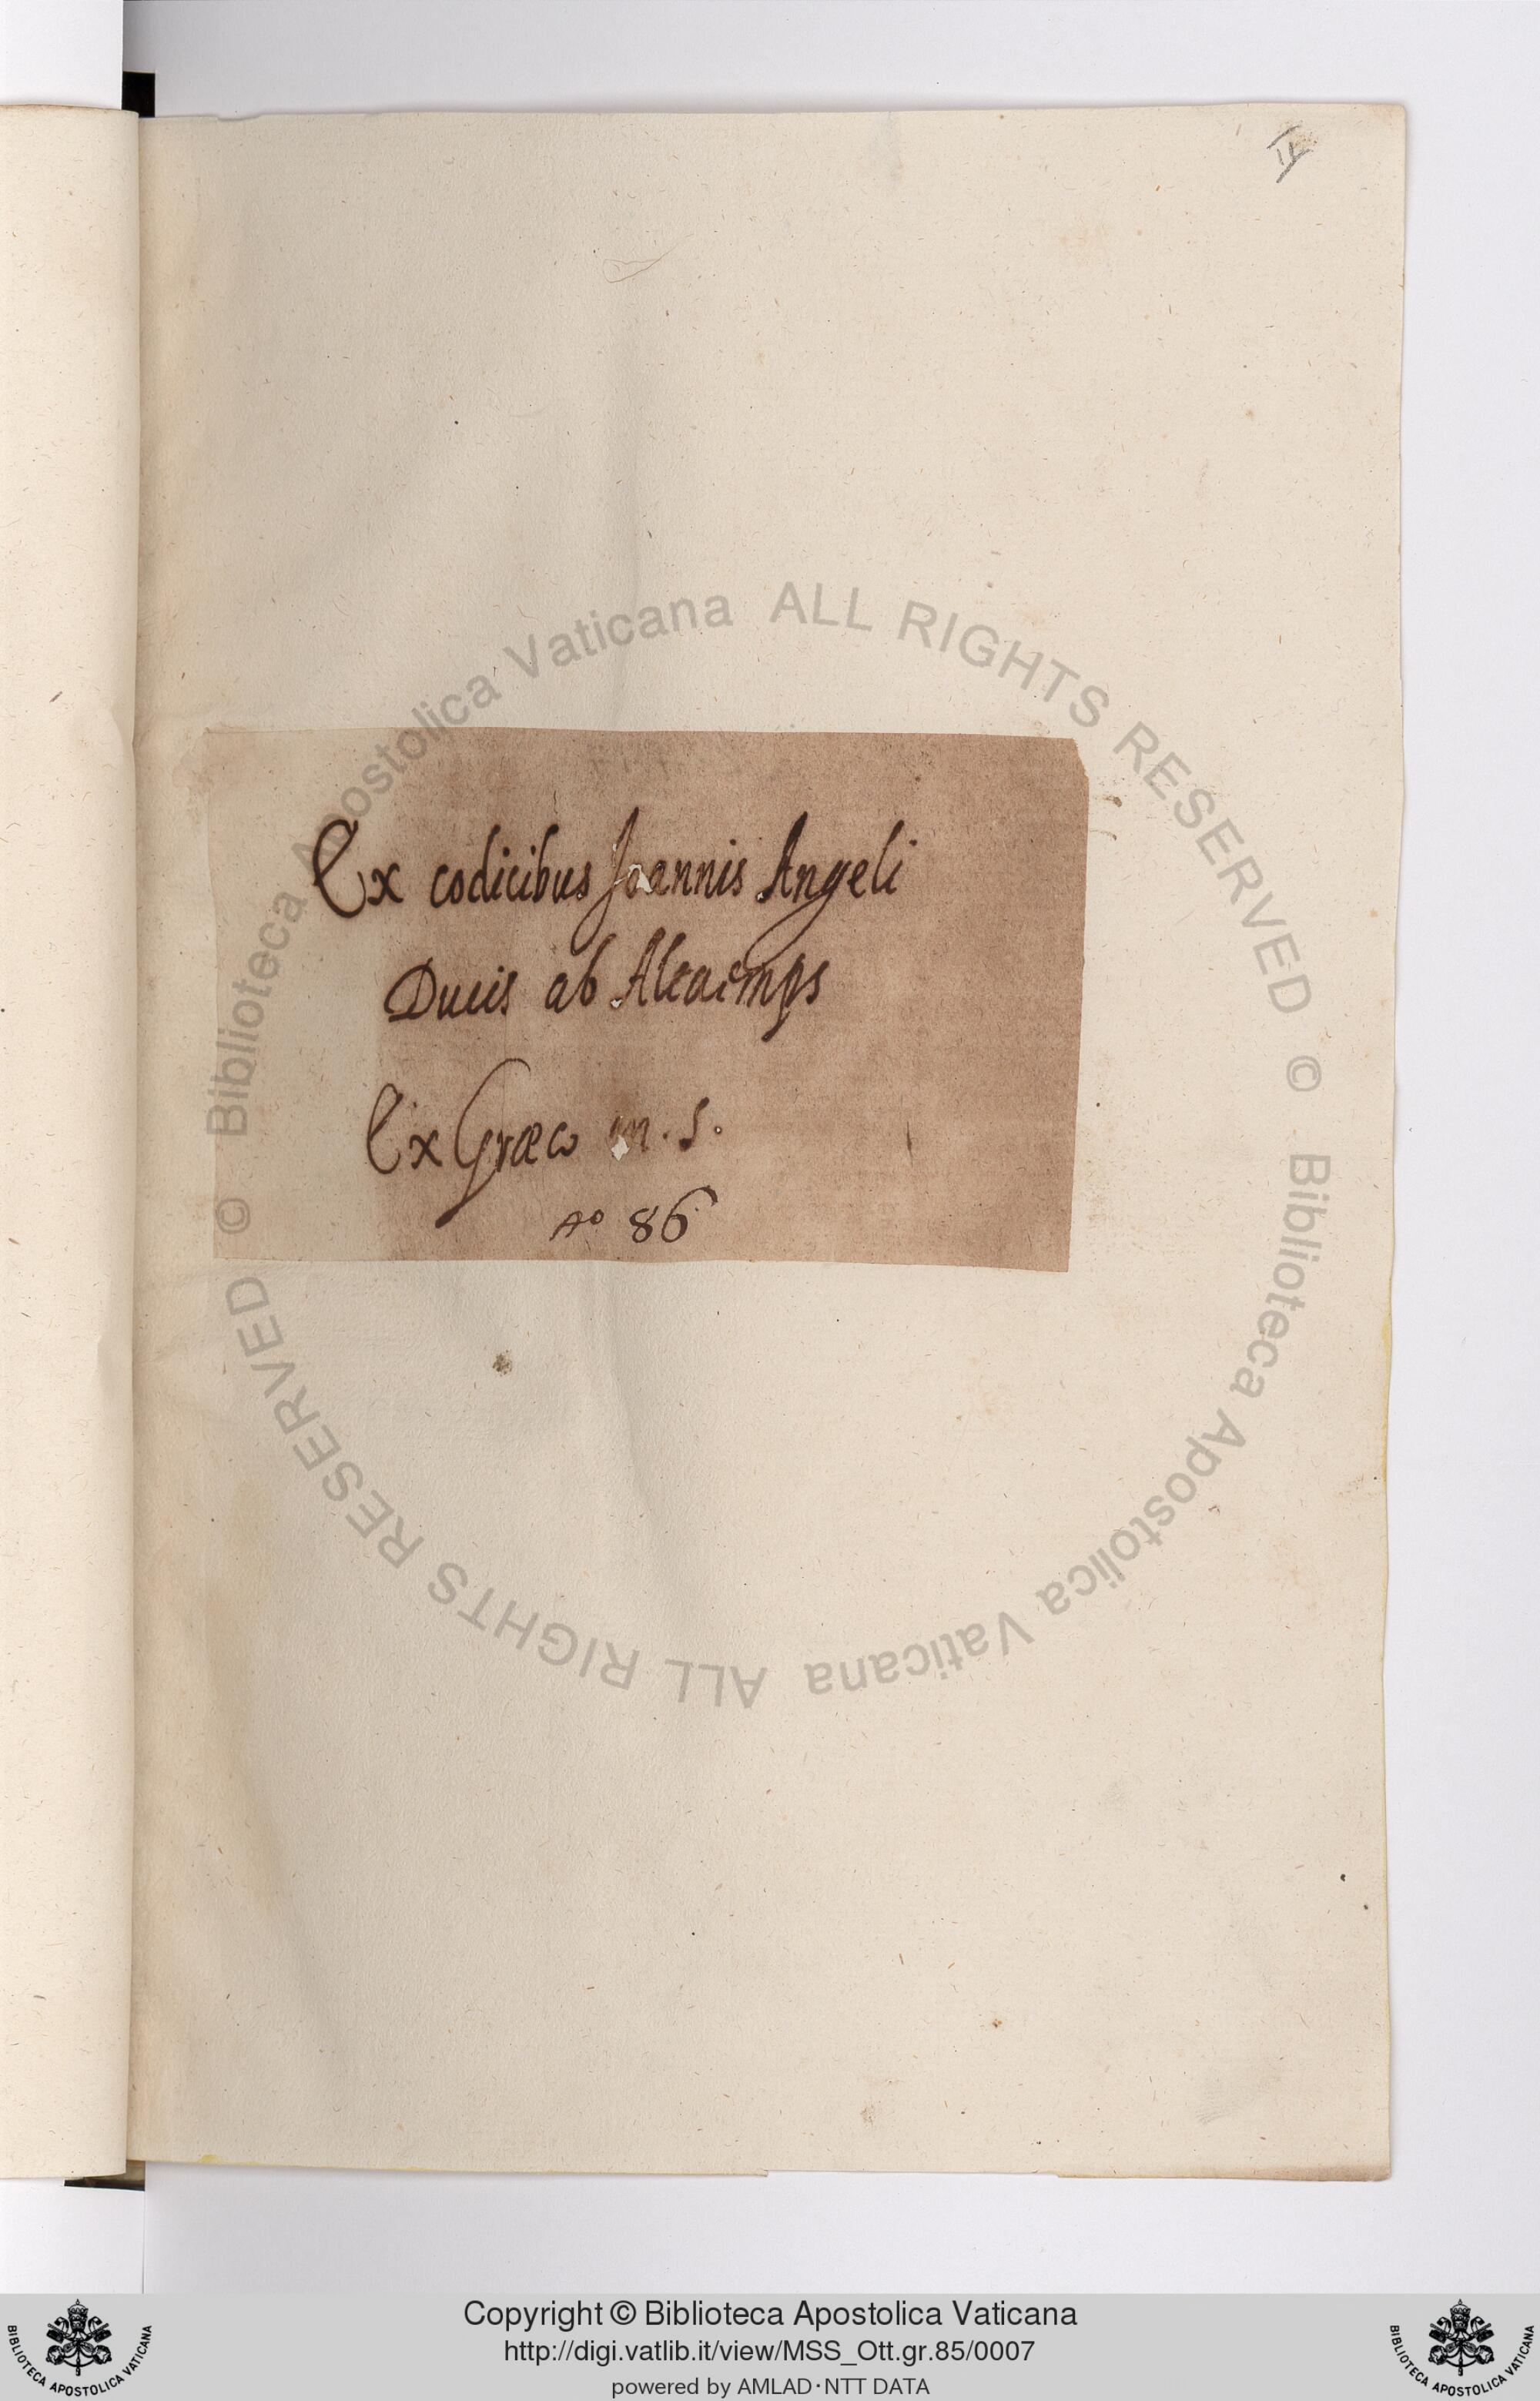 IV
Ex codicibus Joannis Angeli
Ducis ab Altaemps
Ex Græco m. s.
no 86
© Biblioteca Apostolica Vaticana ALL RIGHTS RESERVED
© Biblioteca Apostolica Vaticana ALL RIGHTS RESERVED
Copyright © Biblioteca Apostolica Vaticana
http://digi.vatlib.it/view/MSS_Ott.gr.85/0007
powered by AMLAD·NTT DATA
BIBLIOTECA APOSTOLICA VATICANA
BIBLIOTECA APOSTOLICA VATICANA